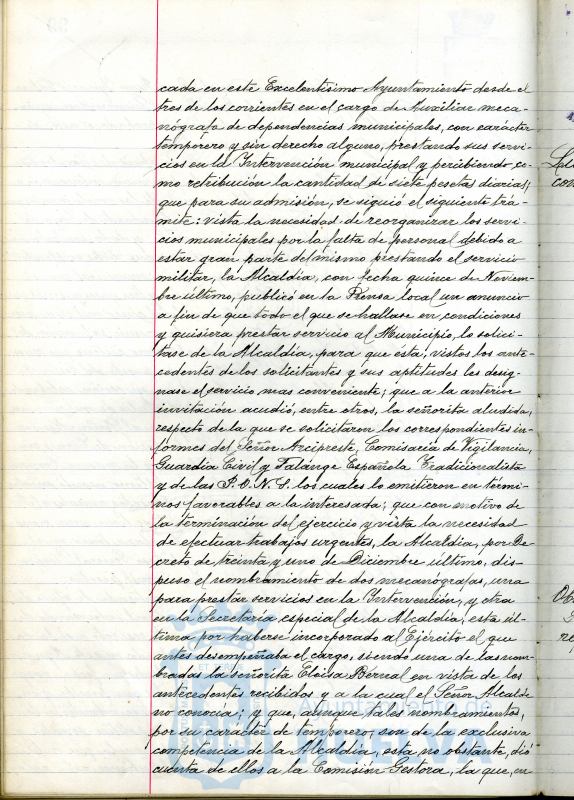 cada en este Excelentísimo Ayuntamiento desde el
tres de los corrientes en el cargo de Auxiliar meca-
nógrafo de dependencias municipales, con carácter
temporero y sin derecho alguno, prestando sus servi-
cios en la Intervención municipal y percibiendo co-
mo retribución la cantidad de siete pesetas diarias;
que para su admisión, se siguió el siguiente trá-
mite: vista la necesidad de reorganizar los servi-
cios municipales por la falta de personal debido a
estar gran parte del mismo prestando el servicio
militar, la Alcaldía, con fecha quince de Noviem-
bre último, publicó en la Prensa local un anuncio
a fin de que todo el que se hallase en condiciones
y quisiera prestar servicio al Municipio, lo solici-
tase de la Alcaldía, para que ésta, vistos los ante-
cedentes de los solicitantes y sus aptitudes les desig-
nase el servicio mas conveniente; que a la anterior
invitación acudió, entre otros, la señorita aludida,
respecto de la que se solicitaron los correspondientes in-
formes del Señor Arcipreste, Comisaría de Vigilancia,
Guardia Civil y Falange Española Tradicionalista
y de las J.O.N.S. los cuales lo emitieron en térmi-
nos favorables a la interesada; que con motivo de
la terminación del ejercicio y vista la necesidad
de efectuar trabajos urgentes, la Alcaldía, por De-
creto de treinta y uno de Diciembre último, dis-
puso el nombramiento de dos mecanógrafas, una
para prestar servicios en la Intervención, y otra
en la Secretaría especial de la Alcaldía, esta úl-
tima por haberse incorporado al Ejército el que
antes desempeñaba el cargo, siendo una de las nom-
bradas la señorita Eloisa Bernal en vista de los
antecedentes recibidos y a la cual el Señor Alcalde
no conocía; y que, aunque tales nombramientos,
por su carácter de temporero, son de la exclusiva
competencia de la Alcaldía, esta no obstante, dió
cuenta de ellos a la Comisión Gestora, la que, en
Ayuntamiento de